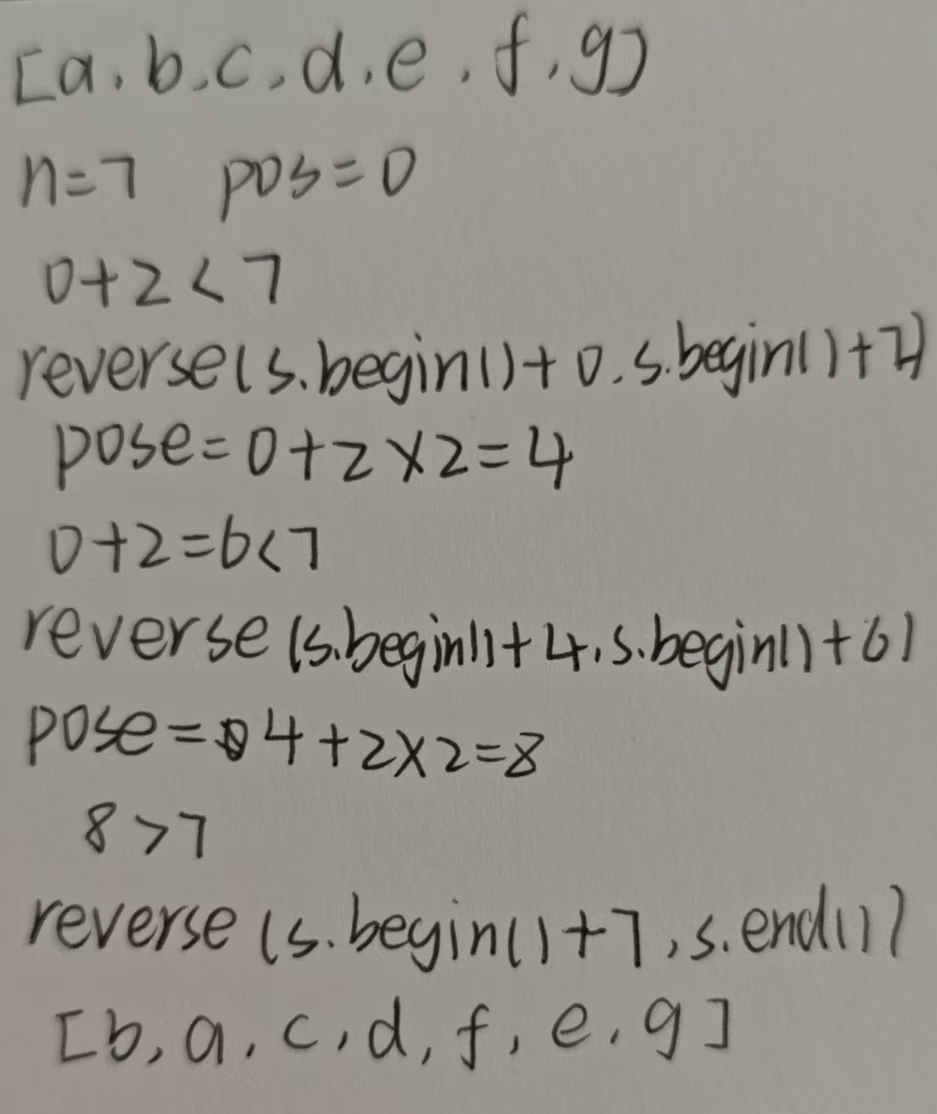 [a,b,c,d,e,f,g]
n=7 pos=0
0+2<7
reverse(s.begin()+0,s.begin()+2)
pose=0+2×2=4
0+2=6<7
reverse(s.begin()+4,s.begin()+6)
pose=4+2×2=8
8>7
reverse(s.begin()+7,s.end())
[b,a,c,d,f,e,g]